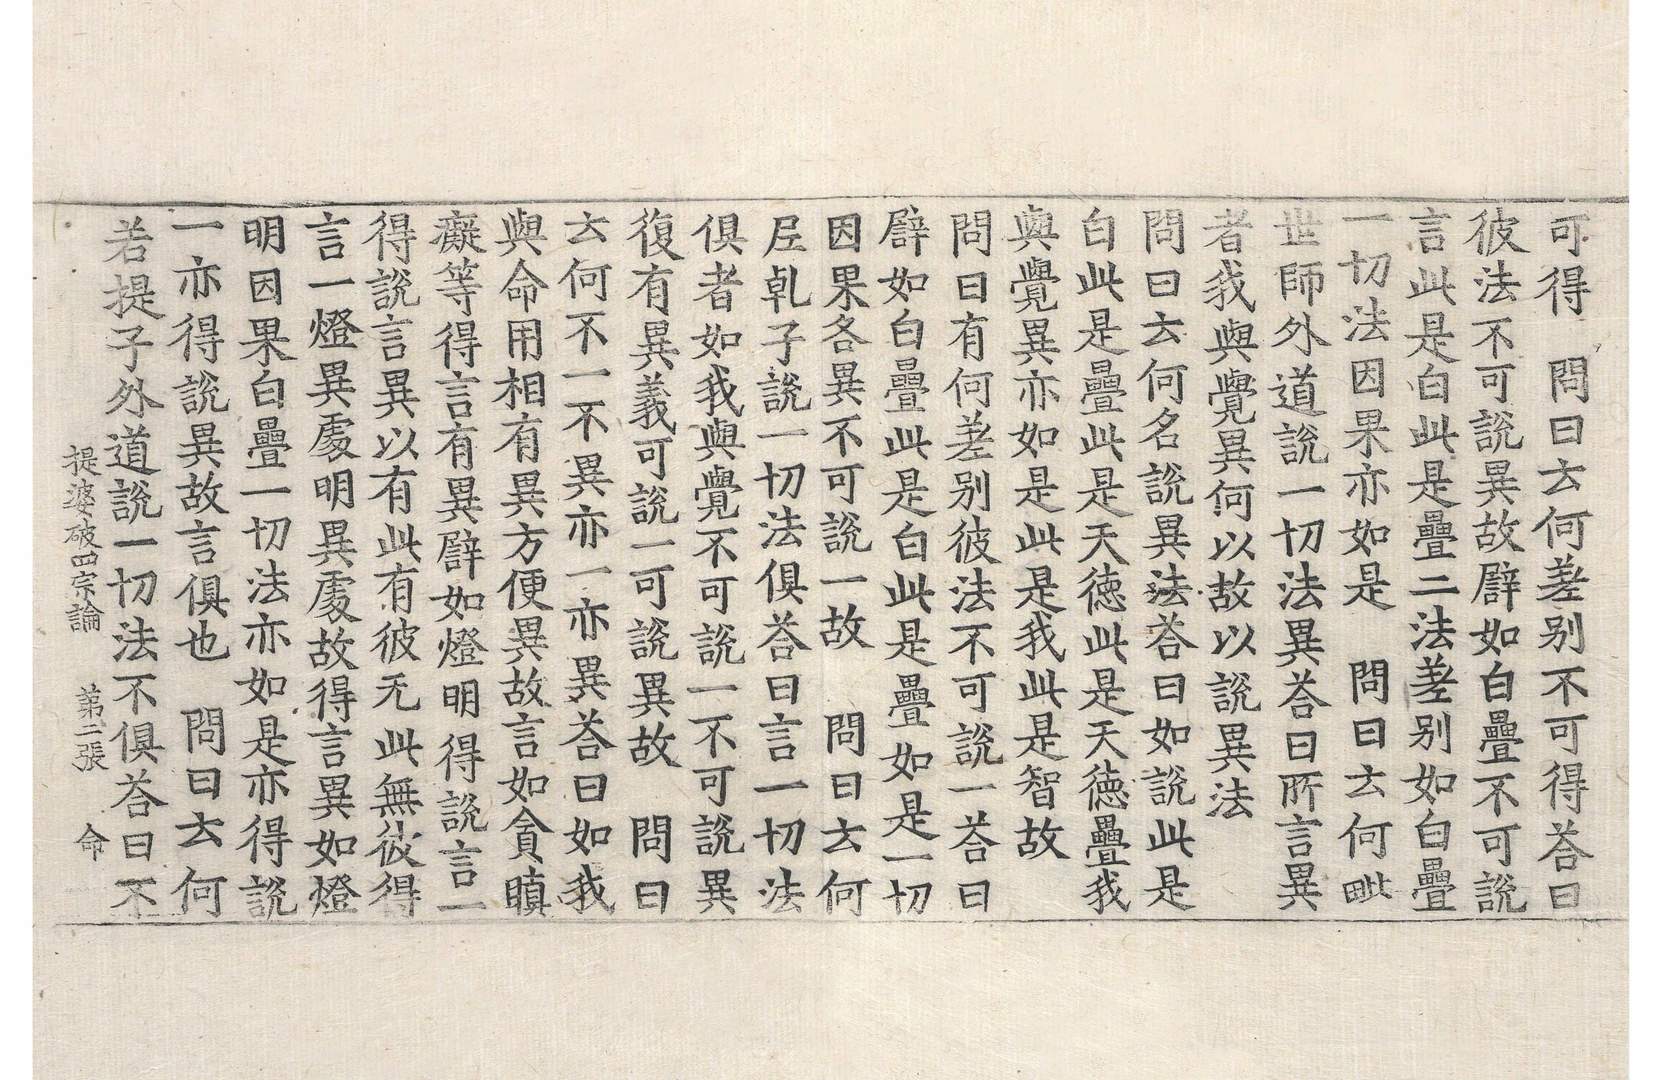 可得　問曰云何差別不可得荅曰
彼法不可說異故譬如白疊不可說
言此是白此是疊二法差別如白疊
一切法因果亦如是　問曰云何毗
世師外道說一切法異荅曰所言異
者我與覺異何以故以說異法
問曰云何名說異法荅曰如說此是
白此是疊此是天德此是天德疊我
與覺異亦如是此是我此是智故
問曰有何差別彼法不可說一荅曰
譬如白疊此是白此是疊如是一切
因果各異不可說一故　問曰云何
尼乹子說一切法俱荅曰言一切法
俱者如我與覺不可說一不可說異
復有異義可說一可說異故　問曰
云何不一不異亦一亦異荅曰如我
與命用相有異方便異故言如貪瞋
癡等得言有異譬如燈明得說言一
得說言異以有此有彼无此無彼得
言一燈異處明異處故得言異如燈
明因果白疊一切法亦如是亦得說
一亦得說異故言俱也　問曰云何
若提子外道說一切法不俱荅曰不
提婆破四宗論　第二張　命